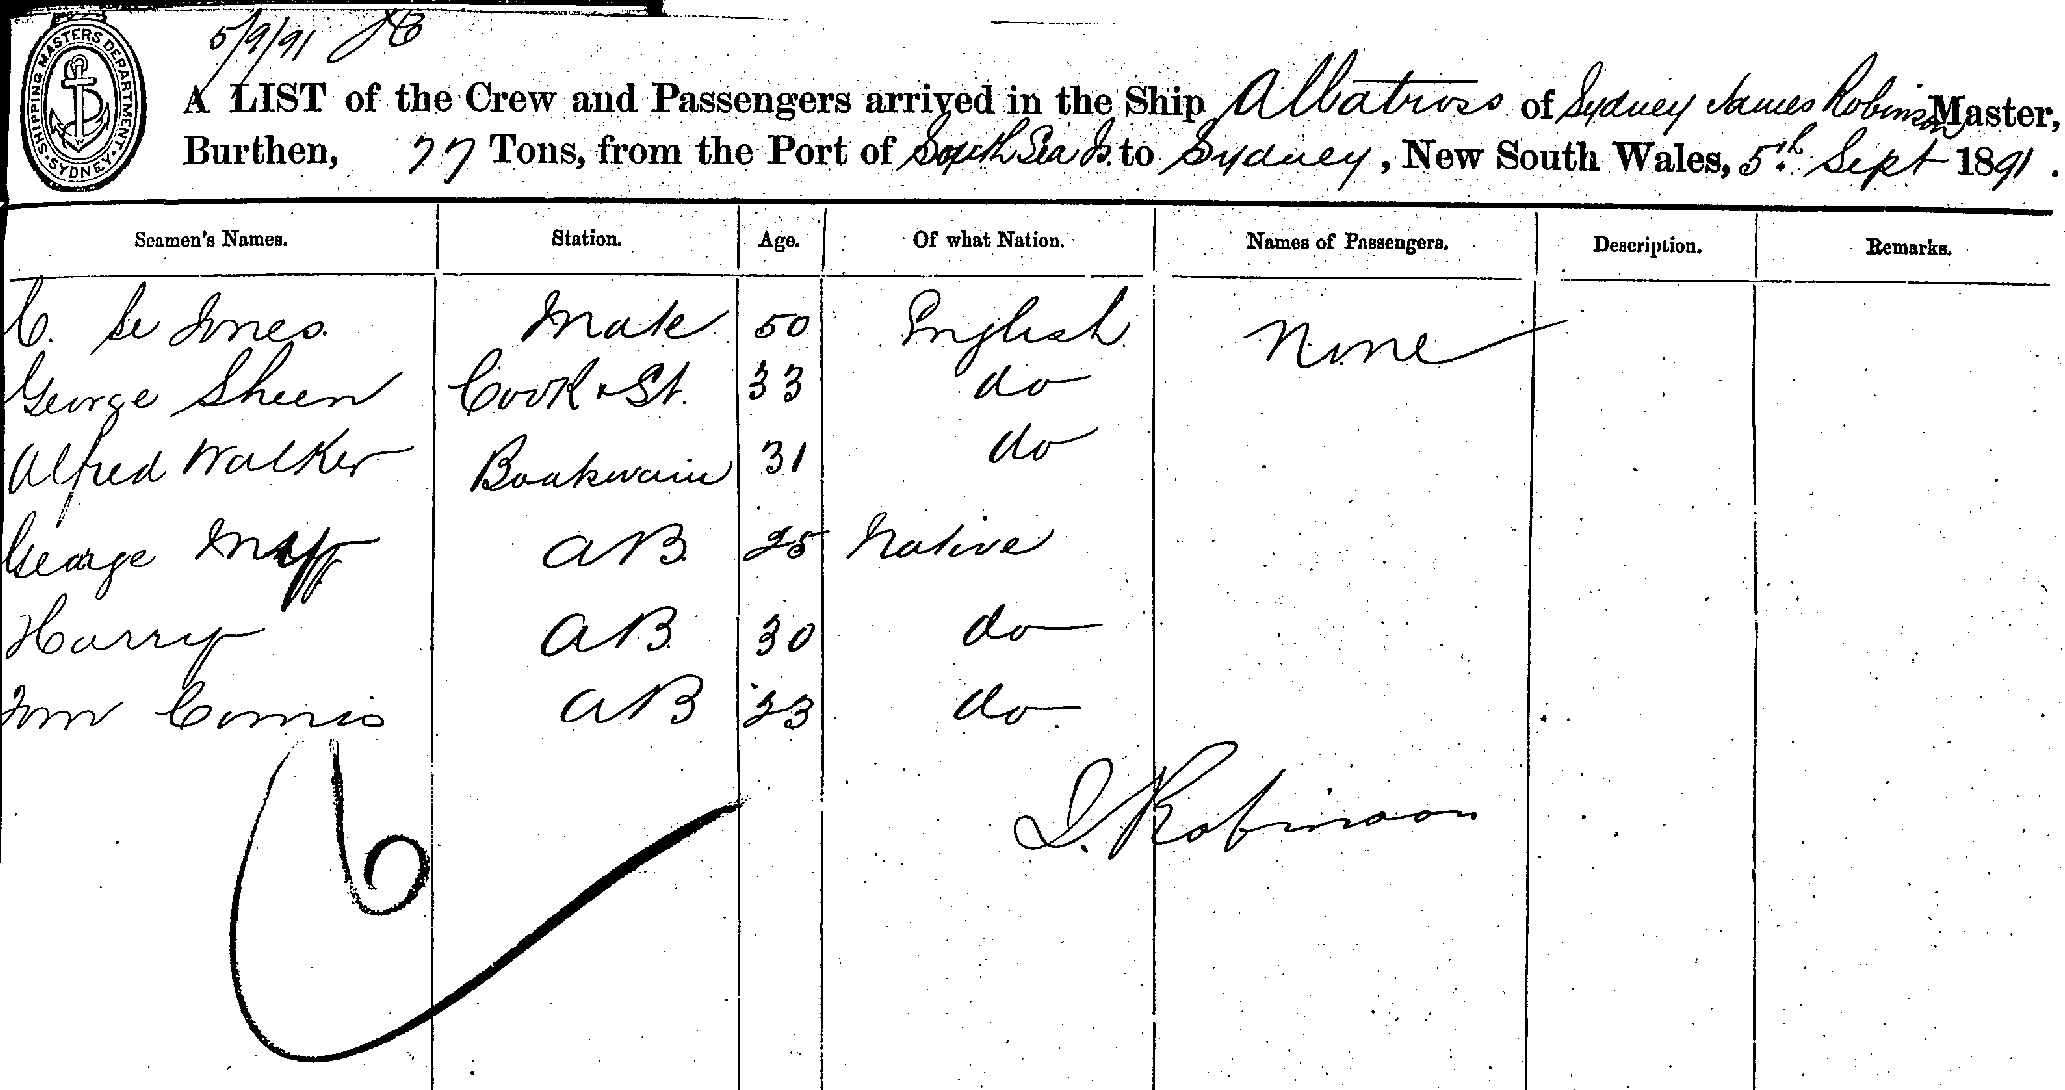 5/9/91
SHIPPING MASTERS DEPARTMENT. SYDNEY
A LIST of the Crew and Passengers arrived in the Ship Albatross of Sydney James Robinson Master,
Burthen, 77 Tons, from the Port of South Sea Is. to Sydney, New South Wales, 5th Sept 1891.
Seamen's Names. Station. Age. Of what Nation. Names of Passengers. Description. Remarks.
C. Jones Mate 50 English None
George Sheen Cook & St. 33 do
Alfred Walker Boatswain 31 do
George AB 25 Native
Harry AB 30 do
Tom AB 23 do
6
J. Robinson